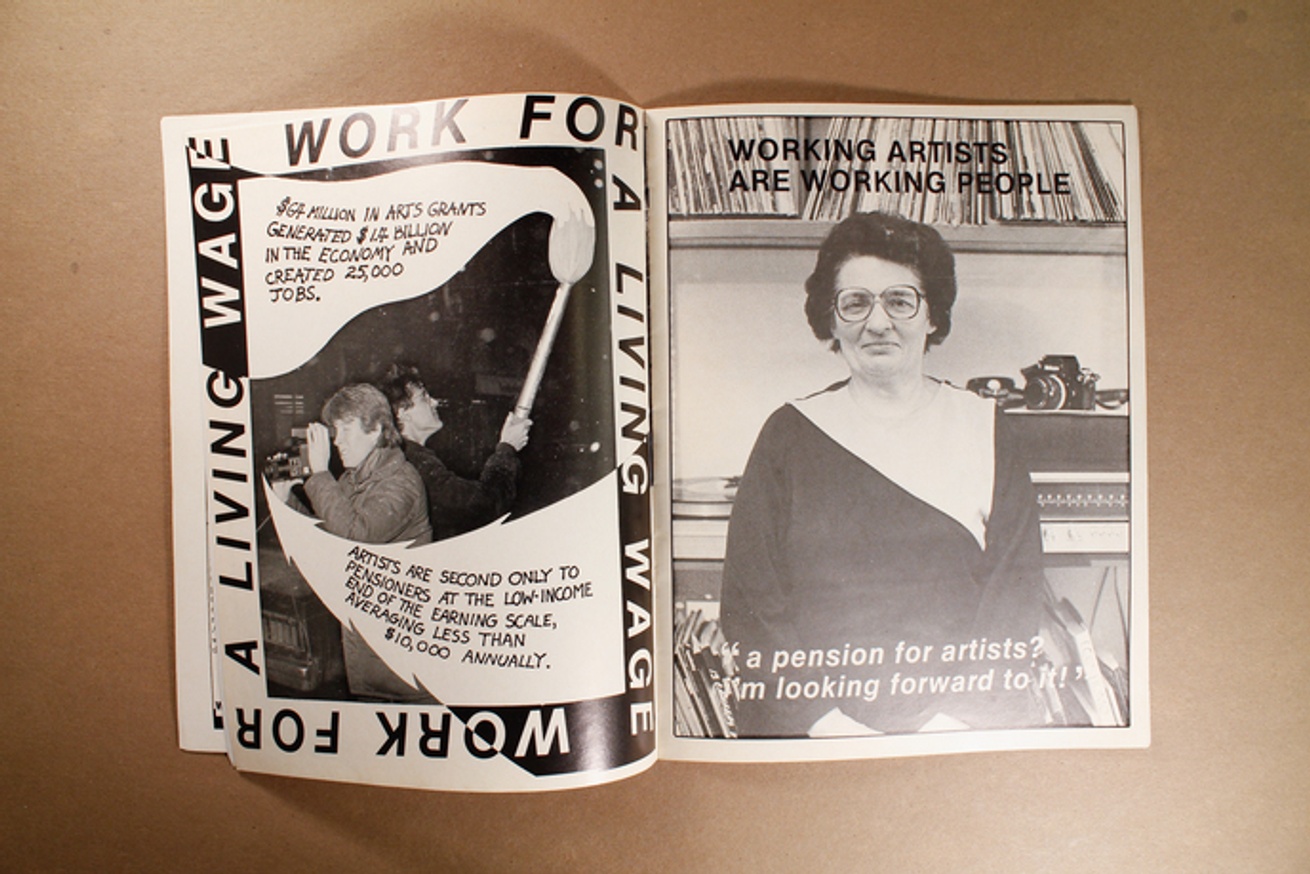 WORK FOR
A LIVING WAGE
WORK FOR
A LIVING WAGE
$64 MILLION IN ARTS GRANTS
GENERATED $1.4 BILLION
IN THE ECONOMY AND
CREATED 25,000
JOBS.
ARTISTS ARE SECOND ONLY TO
PENSIONERS AT THE LOW-INCOME
END OF THE EARNING SCALE,
AVERAGING LESS THAN
$10,000 ANNUALLY.
WORKING ARTISTS
ARE WORKING PEOPLE
“a pension for artists?
I'm looking forward to it!”